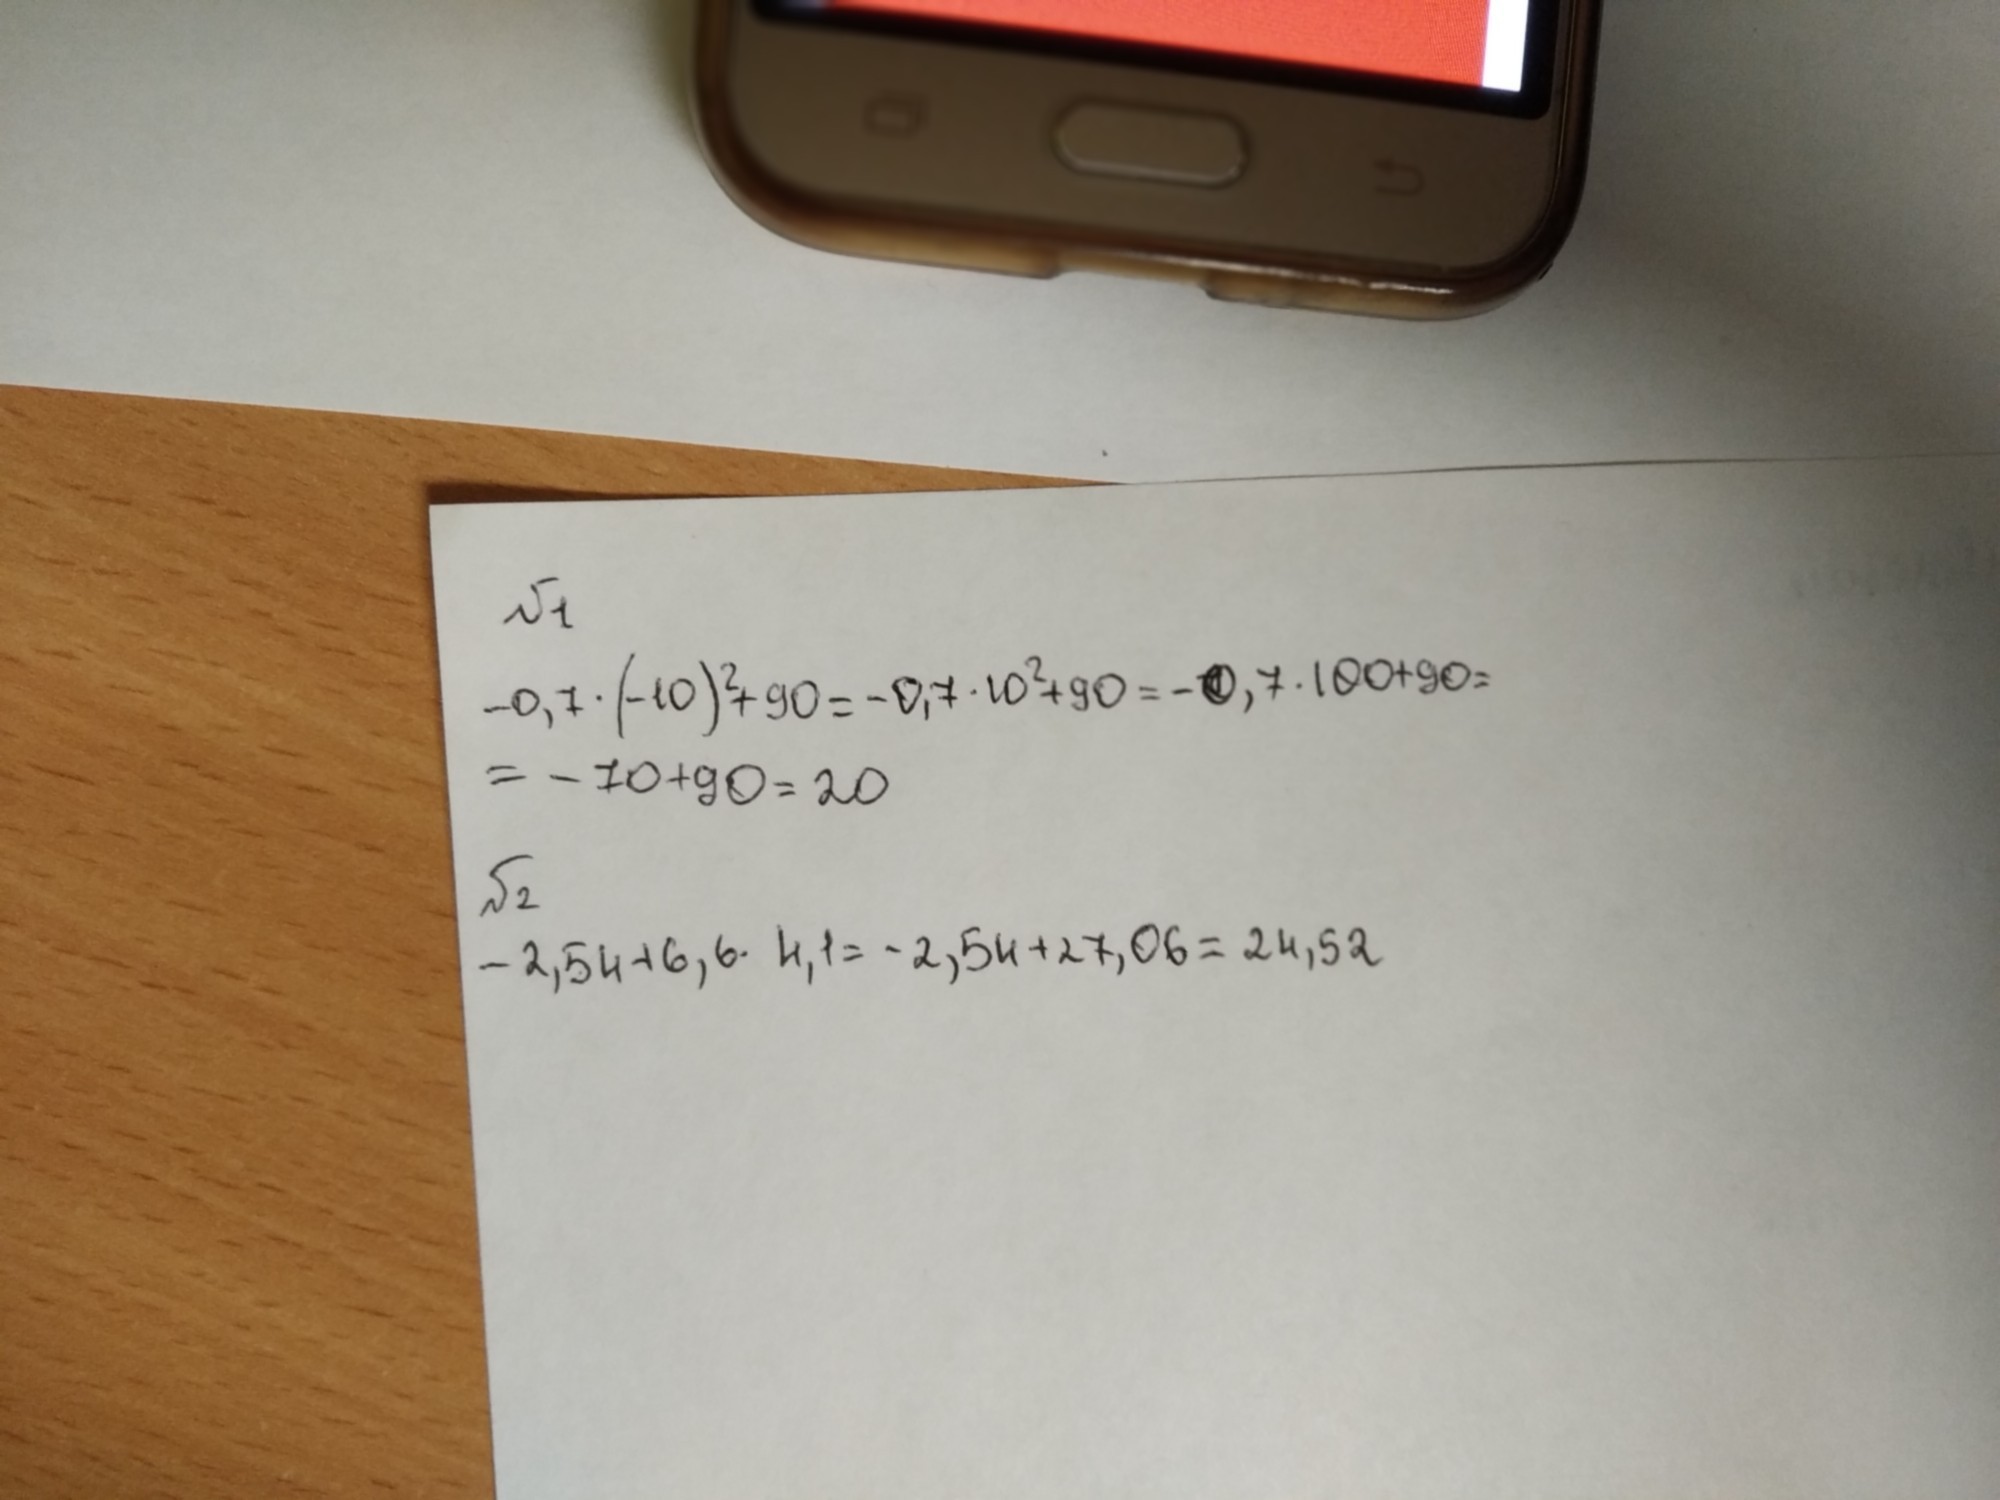 №1
-0,7·(-10)²+90=-0,7·10²+90=-0,7·100+90=
=-70+90=20
№2
-2,54+6,6·4,1=-2,54+27,06=24,52